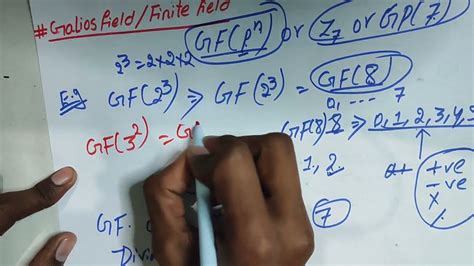 # Galios field / Finite field
GF(pⁿ) or Z₇ or GP(7)
2³ = 2×2×2
E.g GF(2³) ⇒ GF(2³) = GF(8)
0, .... 7
GF(3²) = G
GF(8) 8 ⇒ 0, 1, 2, 3, 4, 5
1, 2
a+
+ve
-ve
x
7
GF.